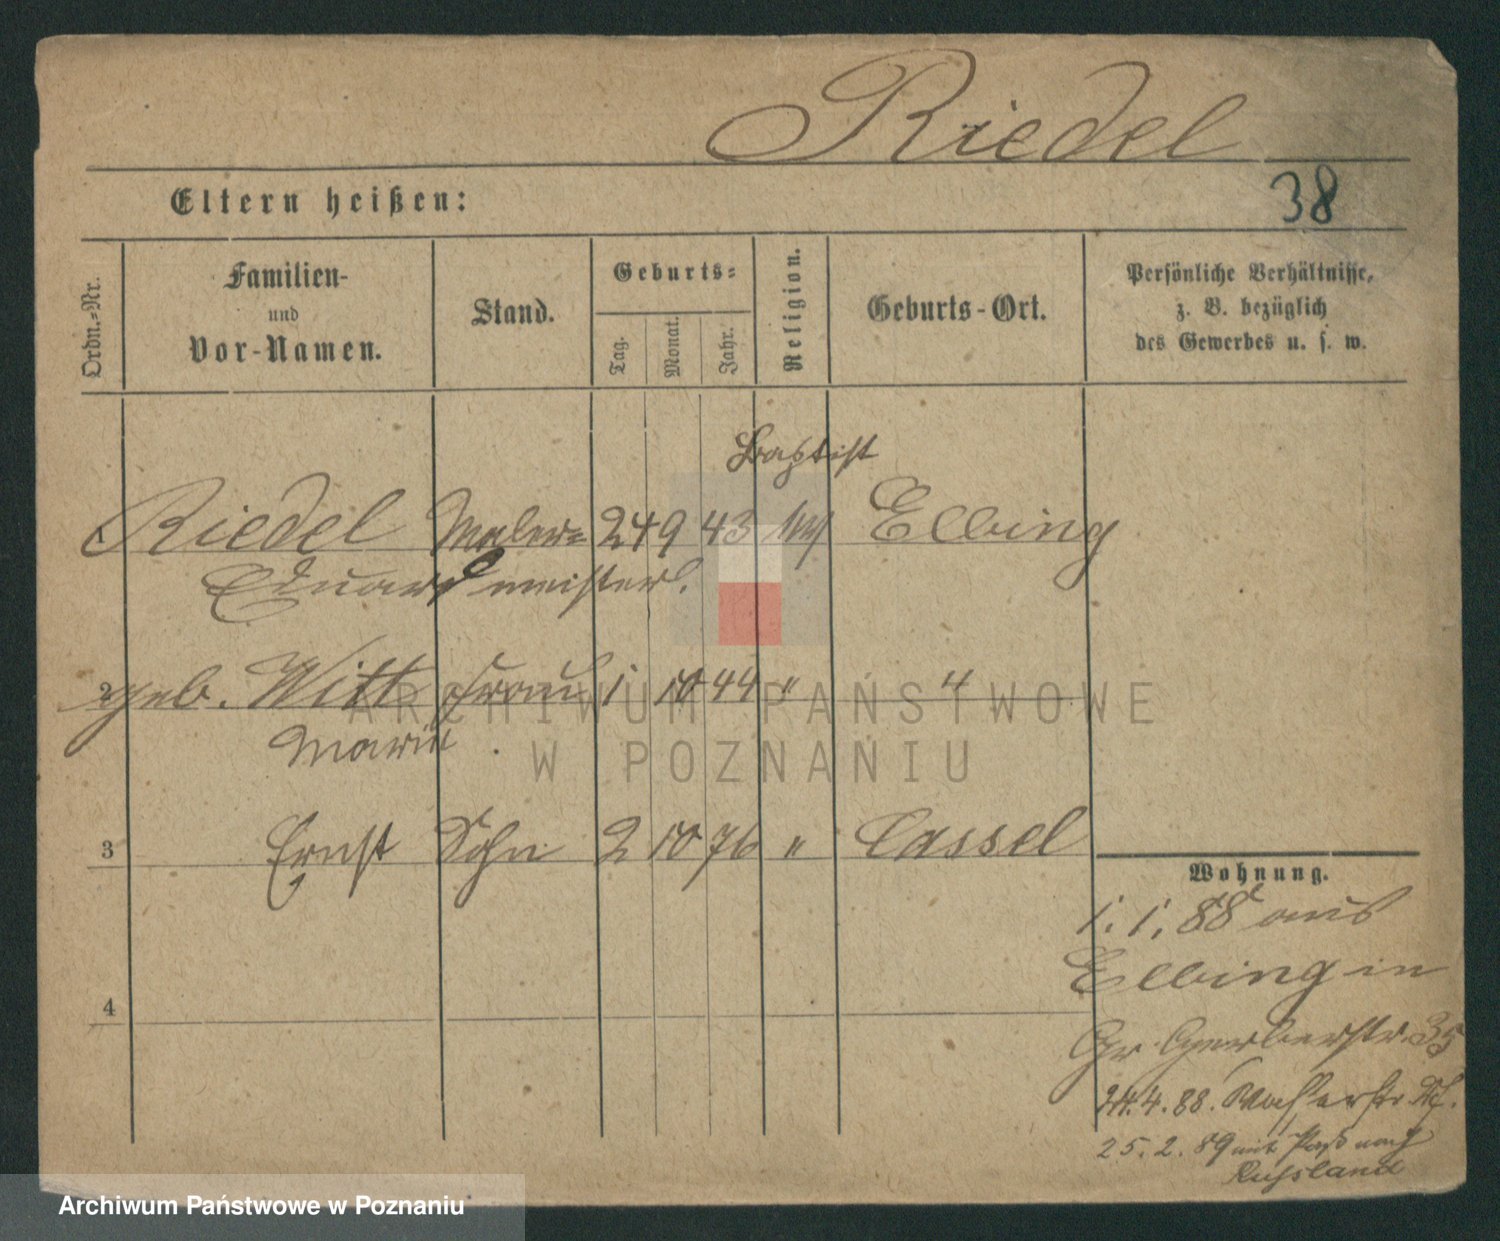 Riedel
38
Eltern heißen:
Ordn.-Nr.
Familien-
und
Vor-Namen.
Stand.
Geburts-
Tag.
Monat.
Jahr.
Religion.
Geburts-Ort.
Persönliche Verhältnisse,
z. B. bezüglich
des Gewerbes u. s. w.
Baptist
1 Riedel Maler- 24 9 43 Elbing
Eduard meister.
2 geb. Witt Frau 1 10 44 " "
Marie
3 Ernst Sohn 2 10 76 " Cassel
4
Wohnung.
1. 1. 88 aus
Elbing in
Gr. Gerberstr. 35
24. 4. 88. Wasserstr.
25. 2. 89 mit Paß nach
Russland
ARCHIWUM PAŃSTWOWE
W POZNANIU
Archiwum Państwowe w Poznaniu